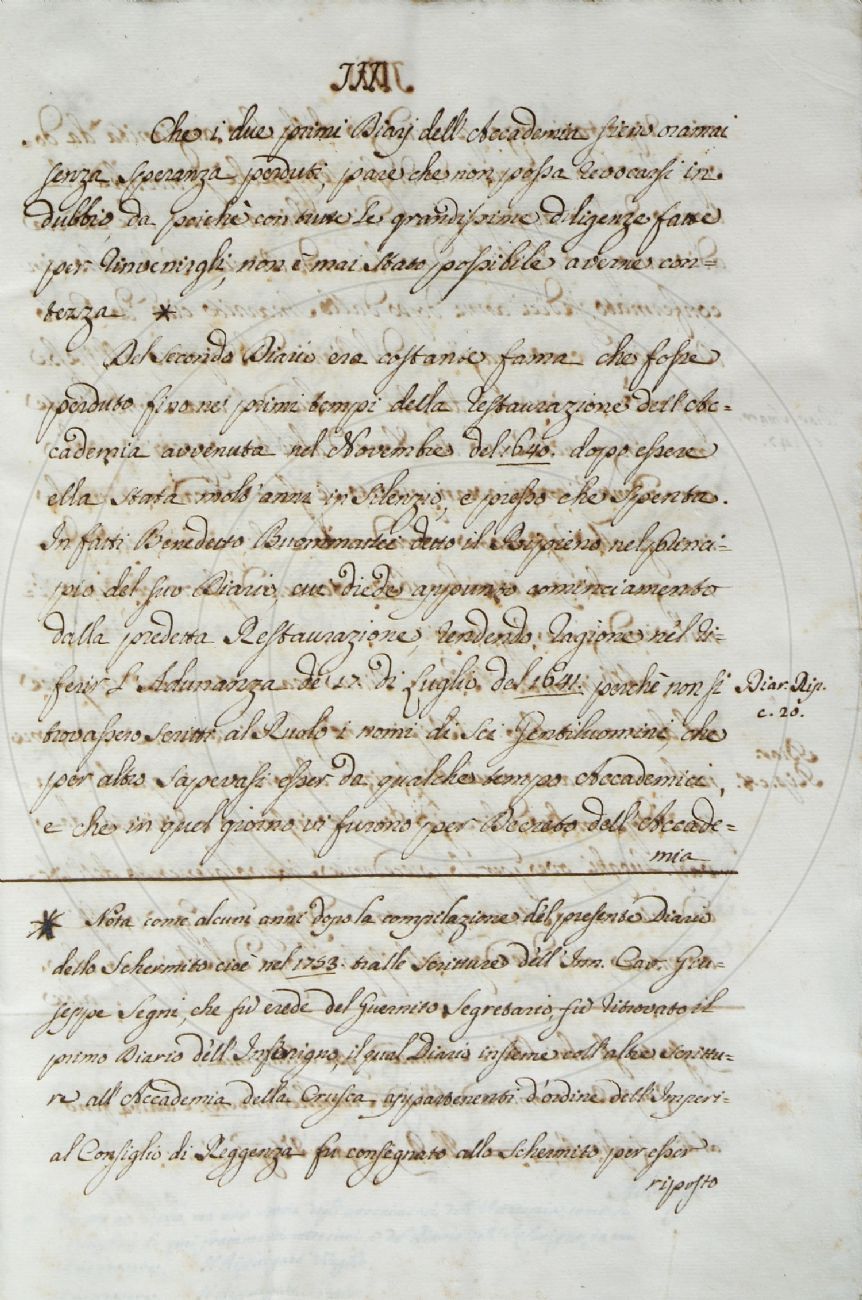 IXXI.
Che i due primi Diarj dell'Accademia sieno oramai
senza speranza perduti, pare che non possa revocarsi in
dubbio, da poichè con tutte le grandissime diligenze fatte
per rinvenirgli, non è mai stato possibile averne con=
tezza *
Del Secondo Diario era costante fama che fosse
perduto fino ne' primi tempi della restaurazione dell'Ac=
cademia avvenuta nel Novembre del 1640. dopo essere
ella stata molt'anni in silenzio, e presso che spenta.
In fatti Benedetto Buommattei detto il Ripieno nel princi=
pio del suo Diario, cui diede appunto cominciamento
dalla predetta Restaurazione, rendendo ragione nel ri=
ferir l'Adunanza de' 17. di Luglio del 1641. perchè non si
trovassero scritti al Ruolo i nomi di sei Gentiluomini, che
per altro sapevasi esser da qualche tempo Accademici,
e che in quel giorno vi furono per Decreto dell'Accade=
mia
Diar. Rip.
c. 20.
* Nota come alcuni anni dopo la compilazione del presente Diario
dello Schermito cioè nel 1753. tralle scritture dell'Inn. Cav. Giu=
seppe Segni, che fu erede del Guernito Segretario, fu ritrovato il
primo Diario dell'Inferigno, il qual Diario insieme coll'altre scrittu=
re all'Accademia della Crusca appartenenti d'ordine dell'Imperi=
al Consiglio di Reggenza fu consegnato allo Schermito per esser
riposto